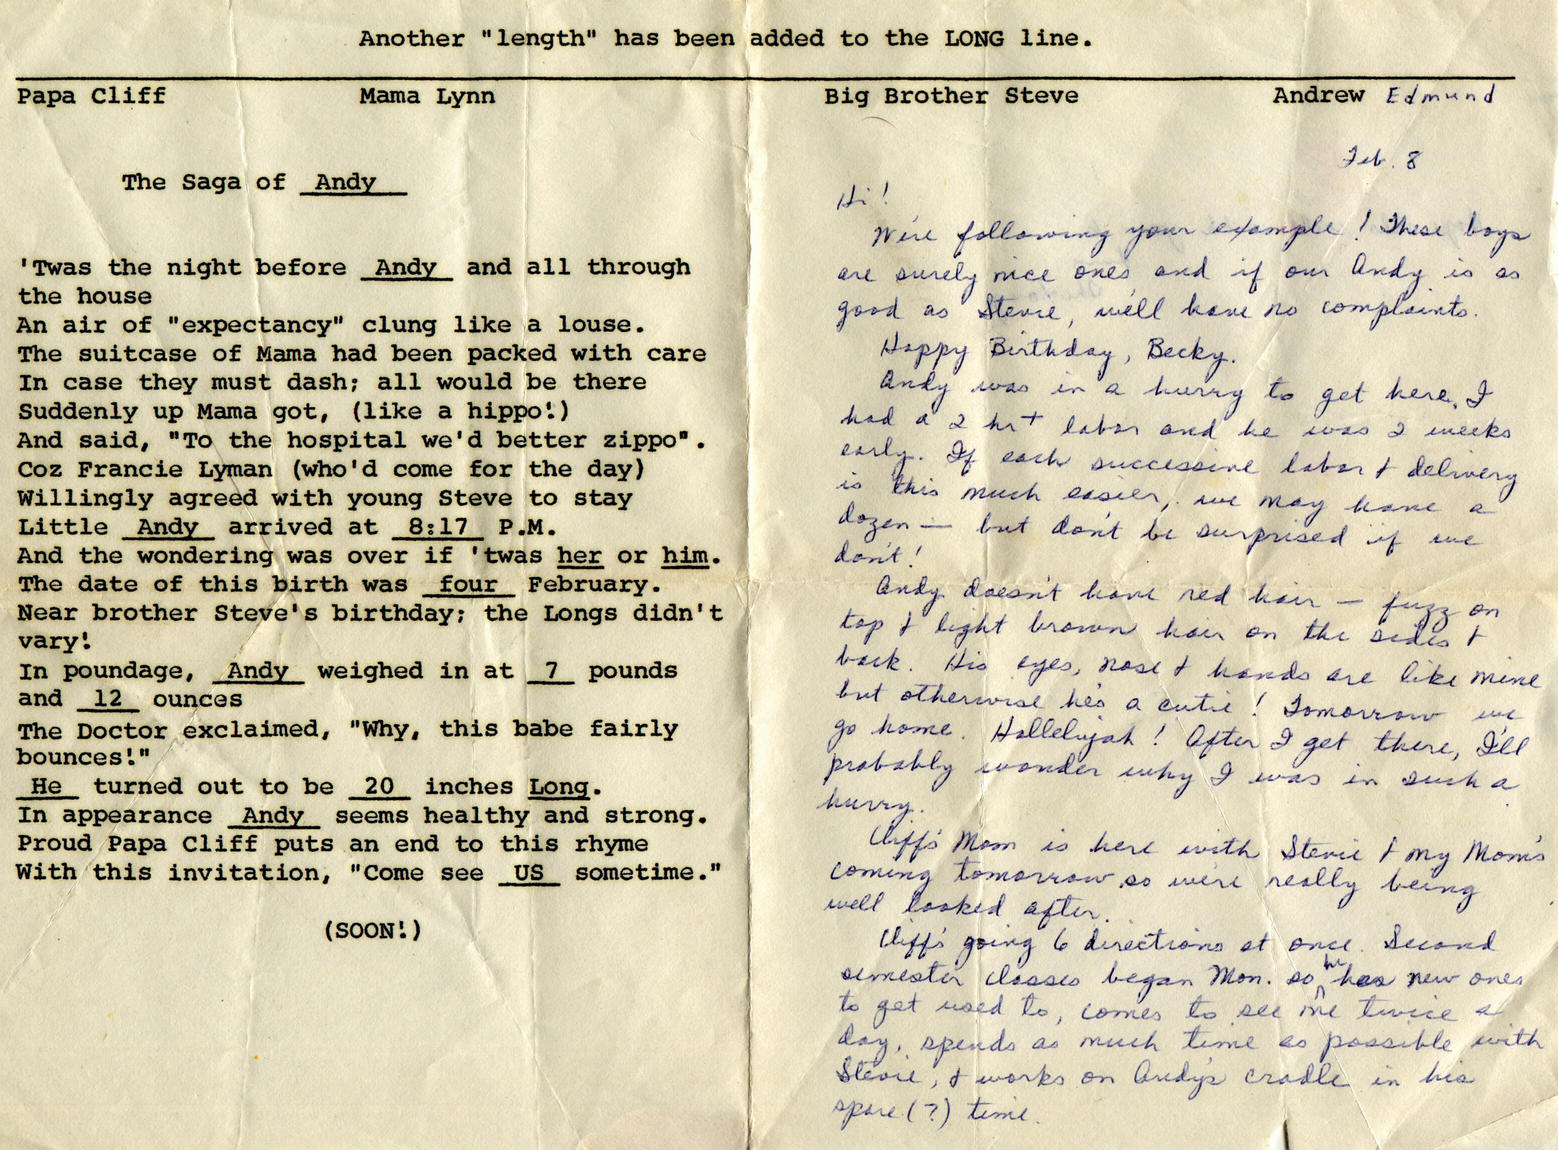 Another "length" has been added to the LONG line.
Papa Cliff Mama Lynn Big Brother Steve Andrew Edmund
The Saga of Andy
'Twas the night before Andy and all through
the house
An air of "expectancy" clung like a louse.
The suitcase of Mama had been packed with care
In case they must dash; all would be there
Suddenly up Mama got, (like a hippo!)
And said, "To the hospital we'd better zippo".
Coz Francie Lyman (who'd come for the day)
Willingly agreed with young Steve to stay
Little Andy arrived at 8:17 P.M.
And the wondering was over if 'twas her or him.
The date of this birth was four February.
Near brother Steve's birthday; the Longs didn't
vary!
In poundage, Andy weighed in at 7 pounds
and 12 ounces
The Doctor exclaimed, "Why, this babe fairly
bounces!"
He turned out to be 20 inches Long.
In appearance Andy seems healthy and strong.
Proud Papa Cliff puts an end to this rhyme
With this invitation, "Come see US sometime."
(SOON!)
Feb. 8
Hi!
We're following your example! These boys
are surely nice ones and if our Andy is as
good as Stevie, we'll have no complaints.
Happy Birthday, Becky.
Andy was in a hurry to get here. I
had a 2 hr+ labor and he was 2 weeks
early. If each successive labor & delivery
is this much easier, we may have a
dozen — but don't be surprised if we
don't!
Andy doesn't have red hair — fuzz on
top & light brown hair on the sides &
back. His eyes, nose & hands are like mine
but otherwise he's a cutie! Tomorrow we
go home. Hallelujah! After I get there, I'll
probably wonder why I was in such a
hurry.
Cliff's Mom is here with Stevie & my Mom's
coming tomorrow so we're really being
well looked after.
Cliff's going 6 directions at once. Second
semester classes began Mon. so he has new ones
to get used to, comes to see me twice a
day, spends as much time as possible with
Stevie, & works on Andy's cradle in his
spare (?) time.